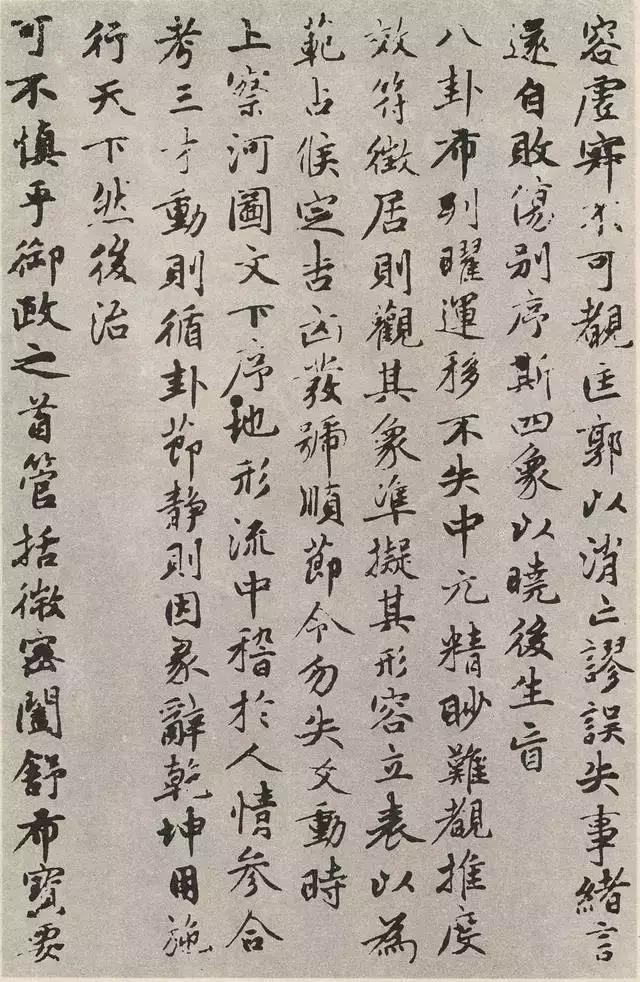 容虚寂不可覩匡郭以消亡謬誤失事緒言
遂自敗傷别序斯四象以曉後生盲
八卦布列曜運移不失中元精眇難覩推度
效符徵居則觀其象準擬其形容立表以為
範占候定吉凶發號順節令勿失爻動時
上察河圖文下序地形流中稽於人情参合
考三才動則循卦節静則因彖辭乾坤用施
行天下然後治
可不慎乎御政之首管括微密闓舒布寳要